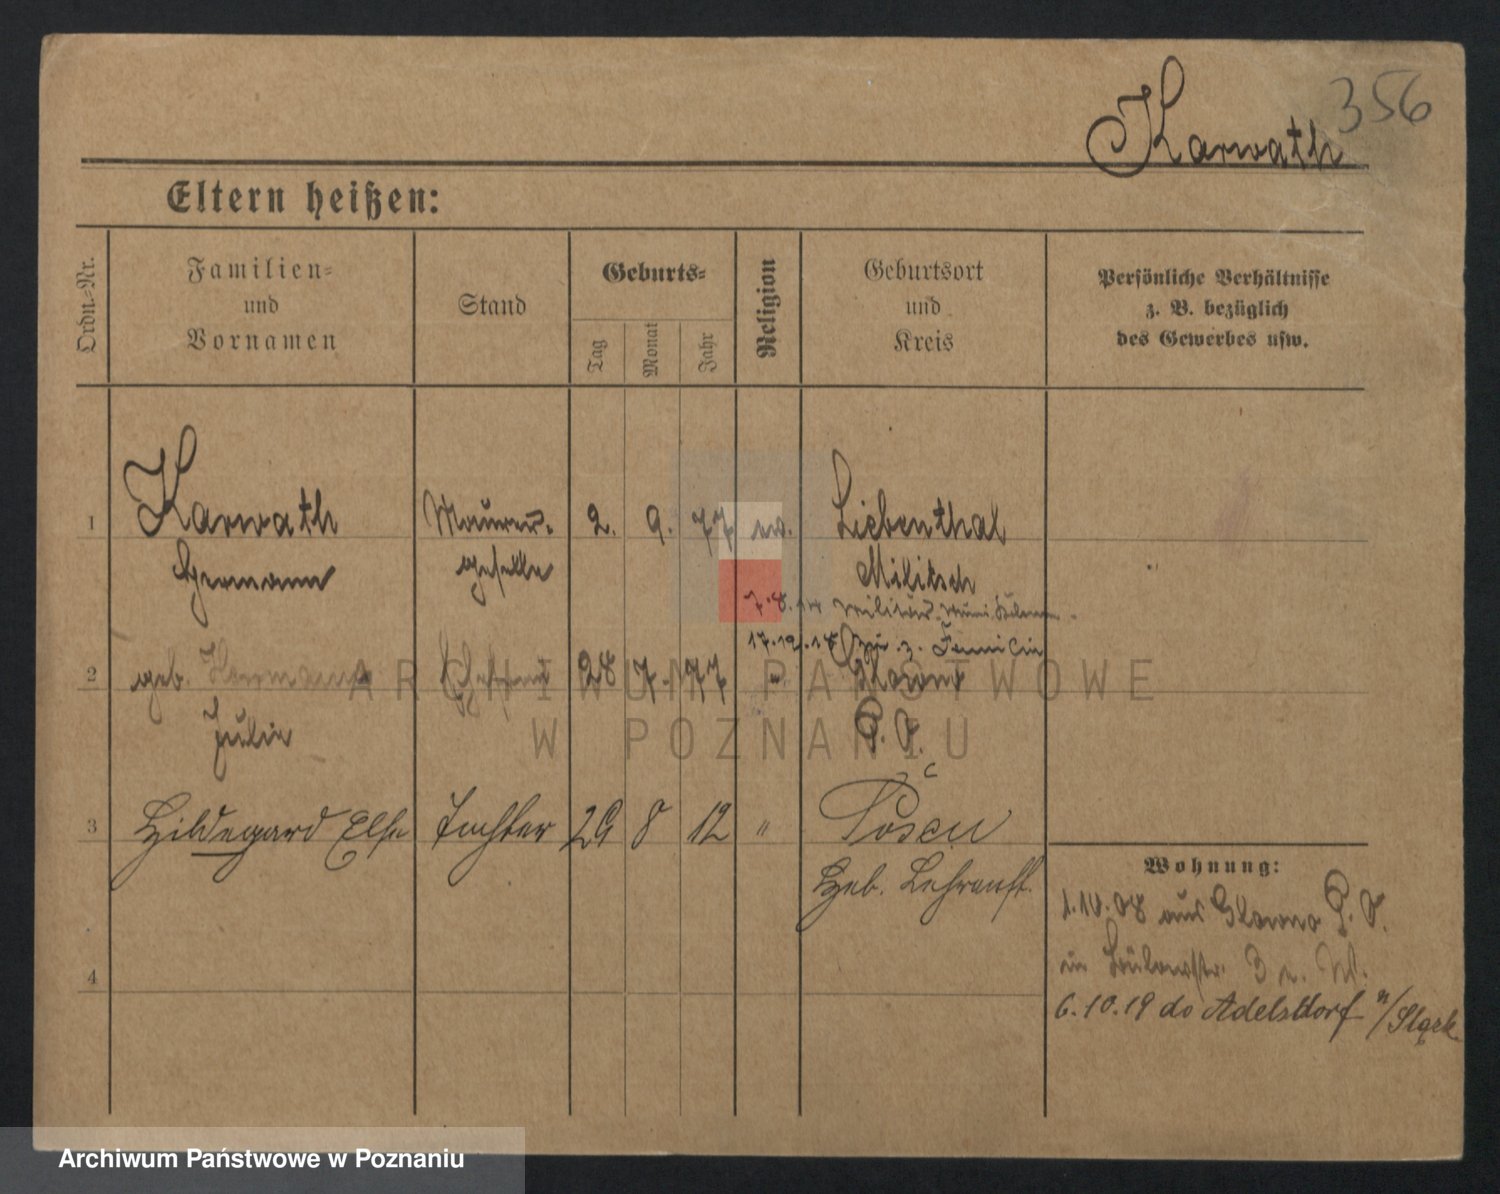 356
Karwath
Eltern heißen:
Ordn.-Nr.
Familien-
und
Vornamen
Stand
Geburts-
Tag
Monat
Jahr
Religion
Geburtsort
und
Kreis
Persönliche Verhältnisse
z. B. bezüglich
des Gewerbes usw.
1 Karwath Maurer- 2. 9. 77 ev. Liebenthal
Hermann geselle Militsch
7.8.14 Militär
17.12.18 z. Familie
2 geb. Hermann Ehefrau 28 7. 77 " Glowno
Julie P. O.
3 Hildegard Else Tochter 29 8 12 " Posen
Heb. Lehranst.
Wohnung:
1.10.08 aus Glowno P. O.
in Bülowstr. 3 W.
6.10.19 do Adelsdorf n/Sląsk
4
ARCHIWUM PAŃSTWOWE
W POZNANIU
Archiwum Państwowe w Poznaniu